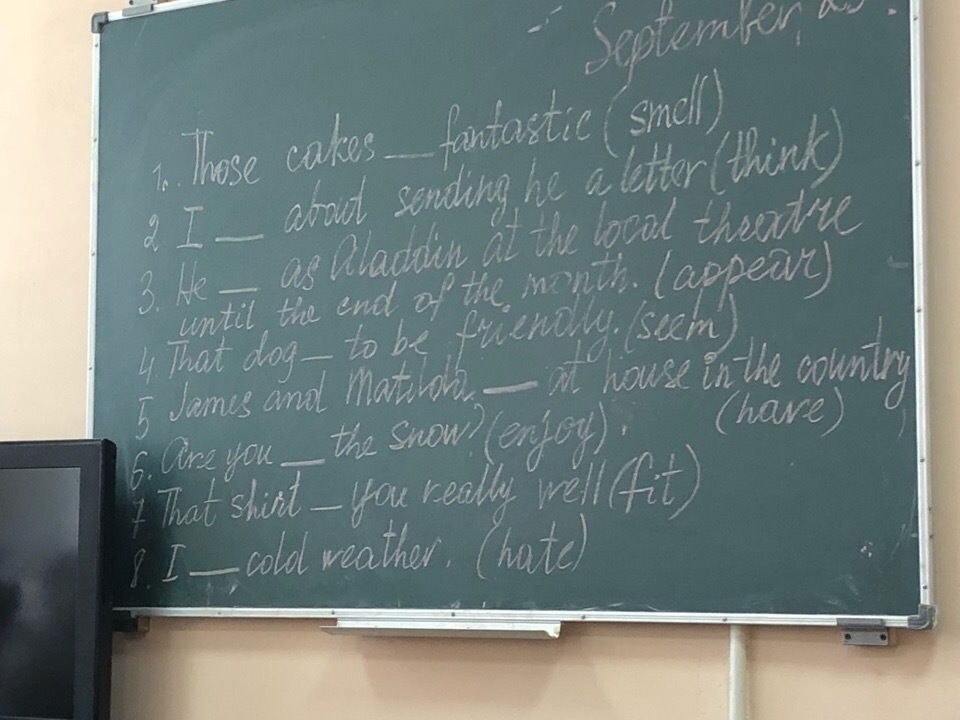 September, 23.
1. Those cakes __ fantastic (smell)
2. I __ about sending he a letter (think)
3. He __ as Aladdin at the local theatre
until the end of the month. (appear)
4. That dog __ to be friendly. (seem)
5 James and Matilda __ at house in the country
(have)
6. Are you __ the snow? (enjoy).
7 That shirt __ you really well (fit)
8. I __ cold weather. (hate)